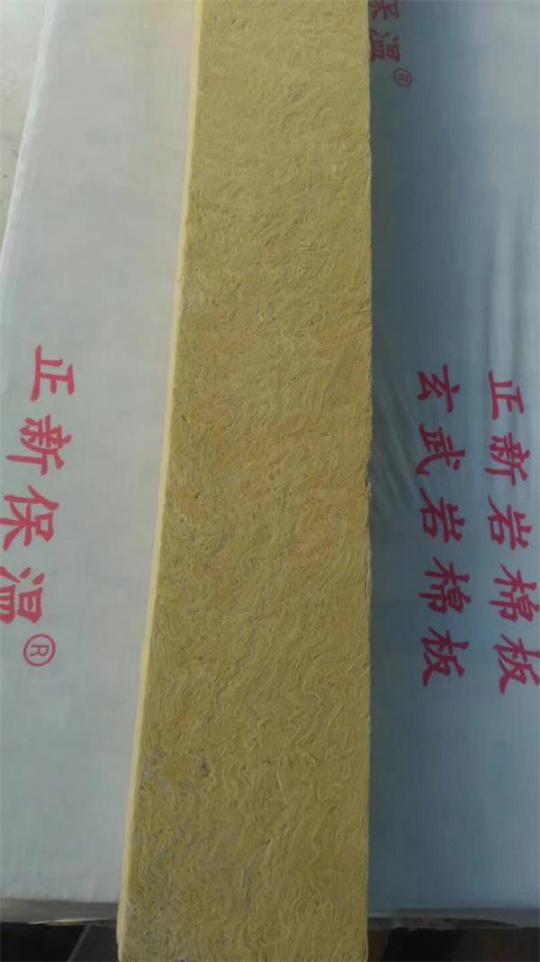 保温®
正新保温®
正新岩棉板
玄武岩棉板